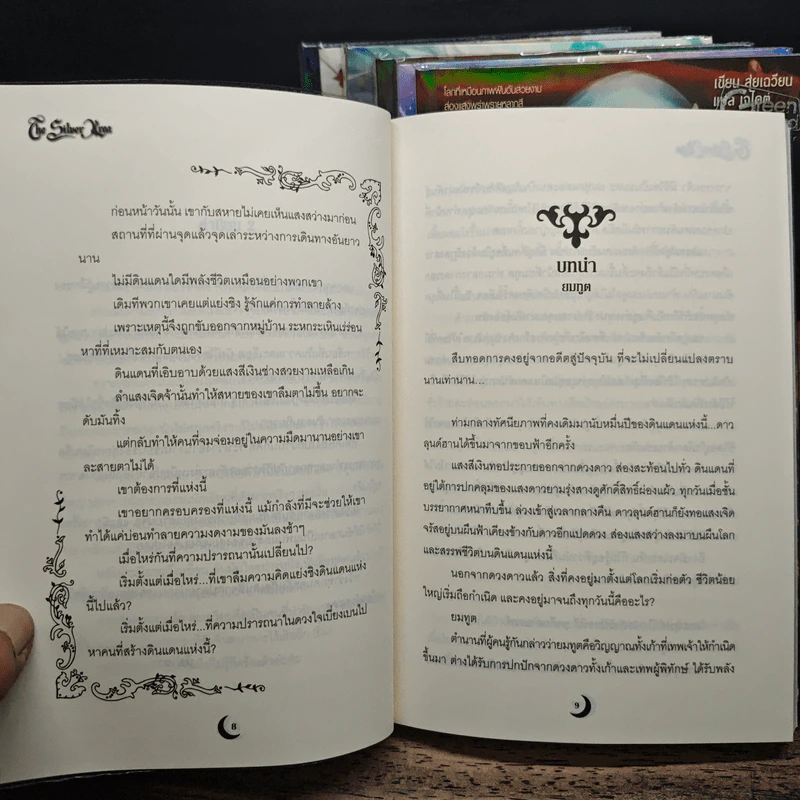 โลกที่เหมือนภาพฝันอันสวยงาม
ส่องแสงพร่าพรายหลากสี
เขียน สุ่ยเฉวียน
The Silver
ก่อนหน้าวันนั้น เขากับสหายไม่เคยเห็นแสงสว่างมาก่อน
สถานที่ที่ผ่านจุดแล้วจุดเล่าระหว่างการเดินทางอันยาว
นาน
ไม่มีดินแดนใดมีพลังชีวิตเหมือนอย่างพวกเขา
เดิมทีพวกเขาเคยแต่แย่งชิง รู้จักแค่การทำลายล้าง
เพราะเหตุนี้จึงถูกขับออกจากหมู่บ้าน ระหกระเหินเร่ร่อน
หาที่ที่เหมาะสมกับตนเอง
ดินแดนที่เอิบอาบด้วยแสงสีเงินช่างสวยงามเหลือเกิน
ลำแสงเจิดจ้านั้นทำให้สหายของเขาลืมตาไม่ขึ้น อยากจะ
ดับมันทิ้ง
แต่กลับทำให้คนที่จมจ่อมอยู่ในความมืดมานานอย่างเขา
ละสายตาไม่ได้
เขาต้องการที่แห่งนี้
เขาอยากครอบครองที่แห่งนี้ แม้กำลังที่มีจะช่วยให้เขา
ทำได้แค่บ่อนทำลายความงดงามของมันลงช้าๆ
เมื่อไหร่กันที่ความปรารถนานั้นเปลี่ยนไป?
เริ่มตั้งแต่เมื่อไหร่...ที่เขาลืมความคิดแย่งชิงดินแดนแห่ง
นี้ไปแล้ว?
เริ่มตั้งแต่เมื่อไหร่...ที่ความปรารถนาในดวงใจเบี่ยงเบนไป
หาคนที่สร้างดินแดนแห่งนี้?
8
บทนำ
ยมทูต
สืบทอดการคงอยู่จากอดีตสู่ปัจจุบัน ที่จะไม่เปลี่ยนแปลงตราบ
นานเท่านาน...
ท่ามกลางทัศนียภาพที่คงเดิมมานับหมื่นปีของดินแดนแห่งนี้...ดาว
ลุนด์ฮานได้ขึ้นมาจากขอบฟ้าอีกครั้ง
แสงสีเงินทอประกายออกจากดวงดาว ส่องสะท้อนไปทั่ว ดินแดนที่
อยู่ใต้การปกคลุมของแสงดาวยามรุ่งสางดูศักดิ์สิทธิ์ผ่องแผ้ว ทุกวันเมื่อชั้น
บรรยากาศหนาทึบขึ้น ล่วงเข้าสู่เวลากลางคืน ดาวลุนด์ฮานก็ยังทอแสงเจิด
จรัสอยู่บนผืนฟ้าเคียงข้างกับดาวอีกแปดดวง ส่องแสงสว่างลงมาบนผืนโลก
และสรรพชีวิตบนดินแดนแห่งนี้
นอกจากดวงดาวแล้ว สิ่งที่คงอยู่มาตั้งแต่โลกเริ่มก่อตัว ชีวิตน้อย
ใหญ่เริ่มถือกำเนิด และคงอยู่มาจนถึงทุกวันนี้คืออะไร?
ยมทูต
ตำนานที่ผู้คนรู้กันกล่าวว่ายมทูตคือวิญญาณทั้งเก้าที่เทพเจ้าให้กำเนิด
ขึ้นมา ต่างได้รับการปกปักจากดวงดาวทั้งเก้าและเทพผู้พิทักษ์ ได้รับพลัง
9